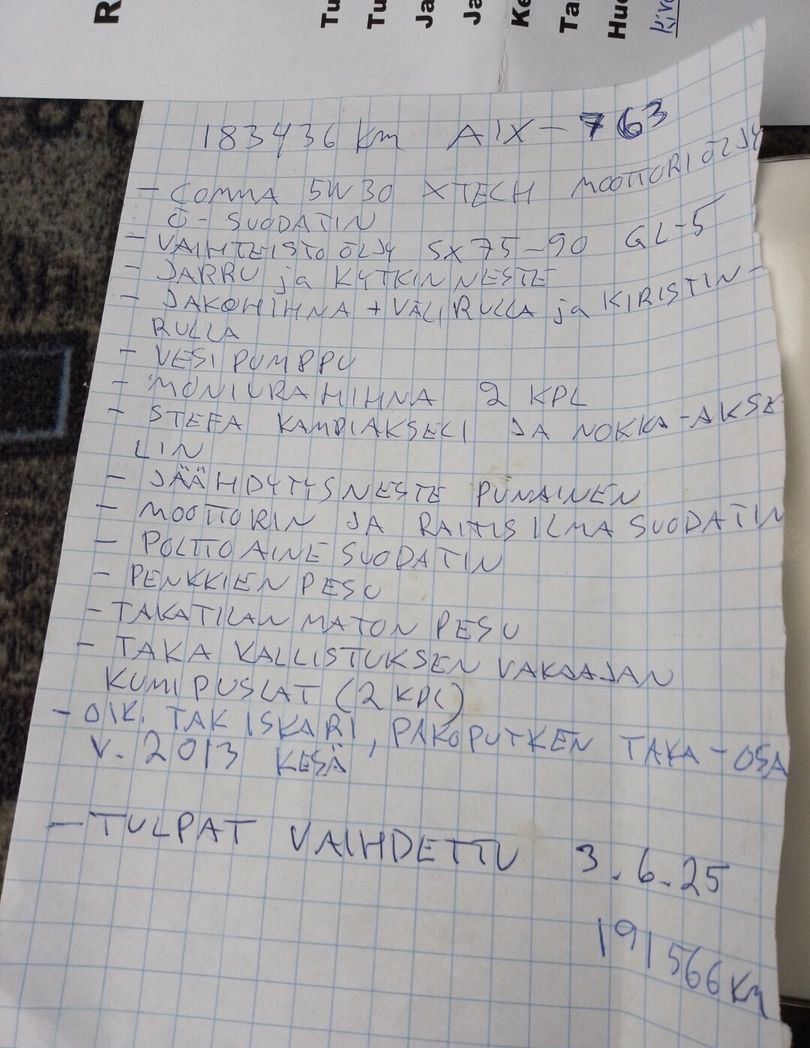 R
Tu
Tu
Ja
Ja
Ke
Ta
Huo
183436 km AIX-763
- COMMA 5W30 XTECH MOOTTORIÖLJY
Ö-SUODATIN
- VAIHTEISTOÖLJY SX75-90 GL-5
- JARRU ja KYTKINNESTE
- JAKOHIHNA + VÄLIRULLA ja KIRISTIN-
RULLA
- VESIPUMPPU
- MONIURAHIHNA 2 KPL
- STEFA KAMPIAKSELI JA NOKKA-AKSE
LIN
- JÄÄHDYTYSNESTE PUNAINEN
- MOOTTORIN JA RAITISILMASUODATIN
- POLTTOAINESUODATIN
- PENKKIEN PESU
- TAKATILAN MATON PESU
- TAKA KALLISTUKSEN VAKAAJAN
KUMIPUSLAT (2 KPL)
- OIK. TAK ISKARI, PAKOPUTKEN TAKA-OSA
V. 2013 KESÄ
- TULPAT VAIHDETTU 3.6.25
191566 Km